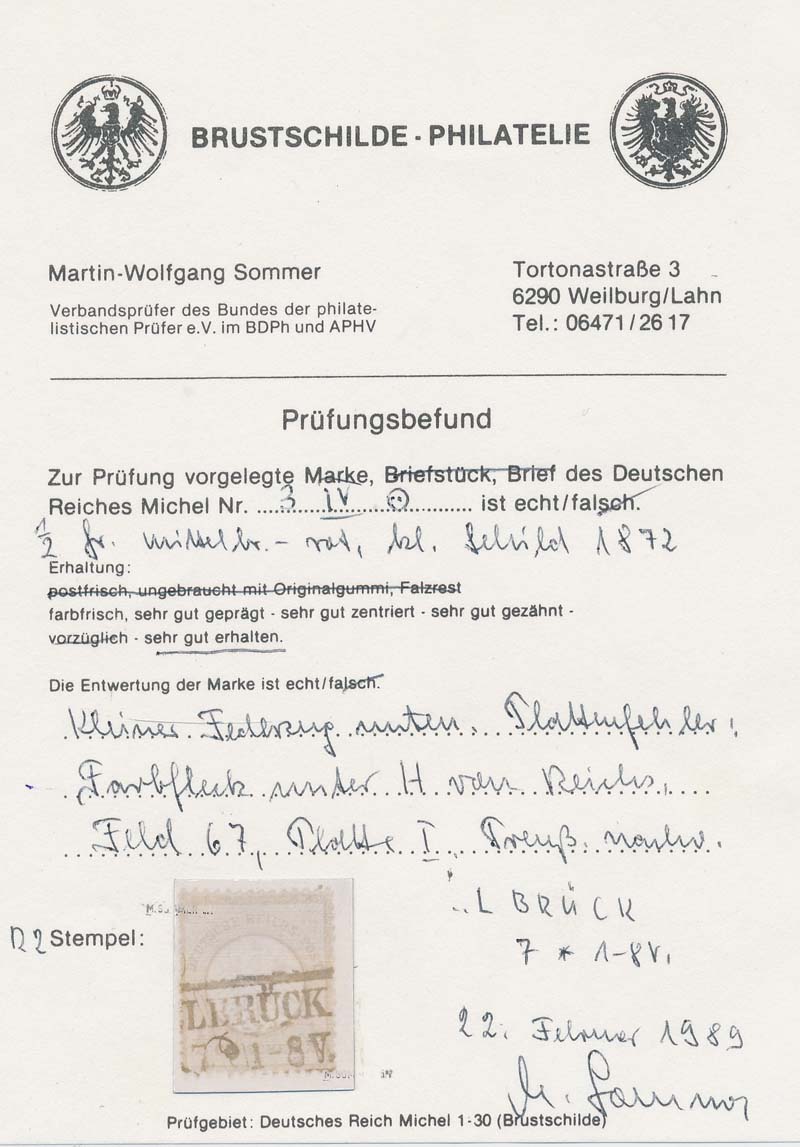 BRUSTSCHILDE - PHILATELIE
Martin-Wolfgang Sommer
Verbandsprüfer des Bundes der philate-
listischen Prüfer e.V. im BDPh und APHV
Tortonastraße 3
6290 Weilburg/Lahn
Tel.: 06471/26 17
Prüfungsbefund
Zur Prüfung vorgelegte Marke, Briefstück, Brief des Deutschen
Reiches Michel Nr. ....3....IV....⊙.......... ist echt/falsch.
1/2 Gr. mittelbr.- rot, kl. Schild 1872
Erhaltung:
postfrisch, ungebraucht mit Originalgummi, Falzrest
farbfrisch, sehr gut geprägt - sehr gut zentriert - sehr gut gezähnt -
vorzüglich - sehr gut erhalten.
Die Entwertung der Marke ist echt/falsch.
Kleiner Federzug unten. Plattenfehler:
Farbfleck unter H von Reichs,
Feld 67, Platte I, Preuß. nachv.
..L BRÜCK
7 * 1-8 V.
R2 Stempel:
LBRÜCK
7 1-8 V.
22. Februar 1989
M. Sommer
Prüfgebiet: Deutsches Reich Michel 1-30 (Brustschilde)